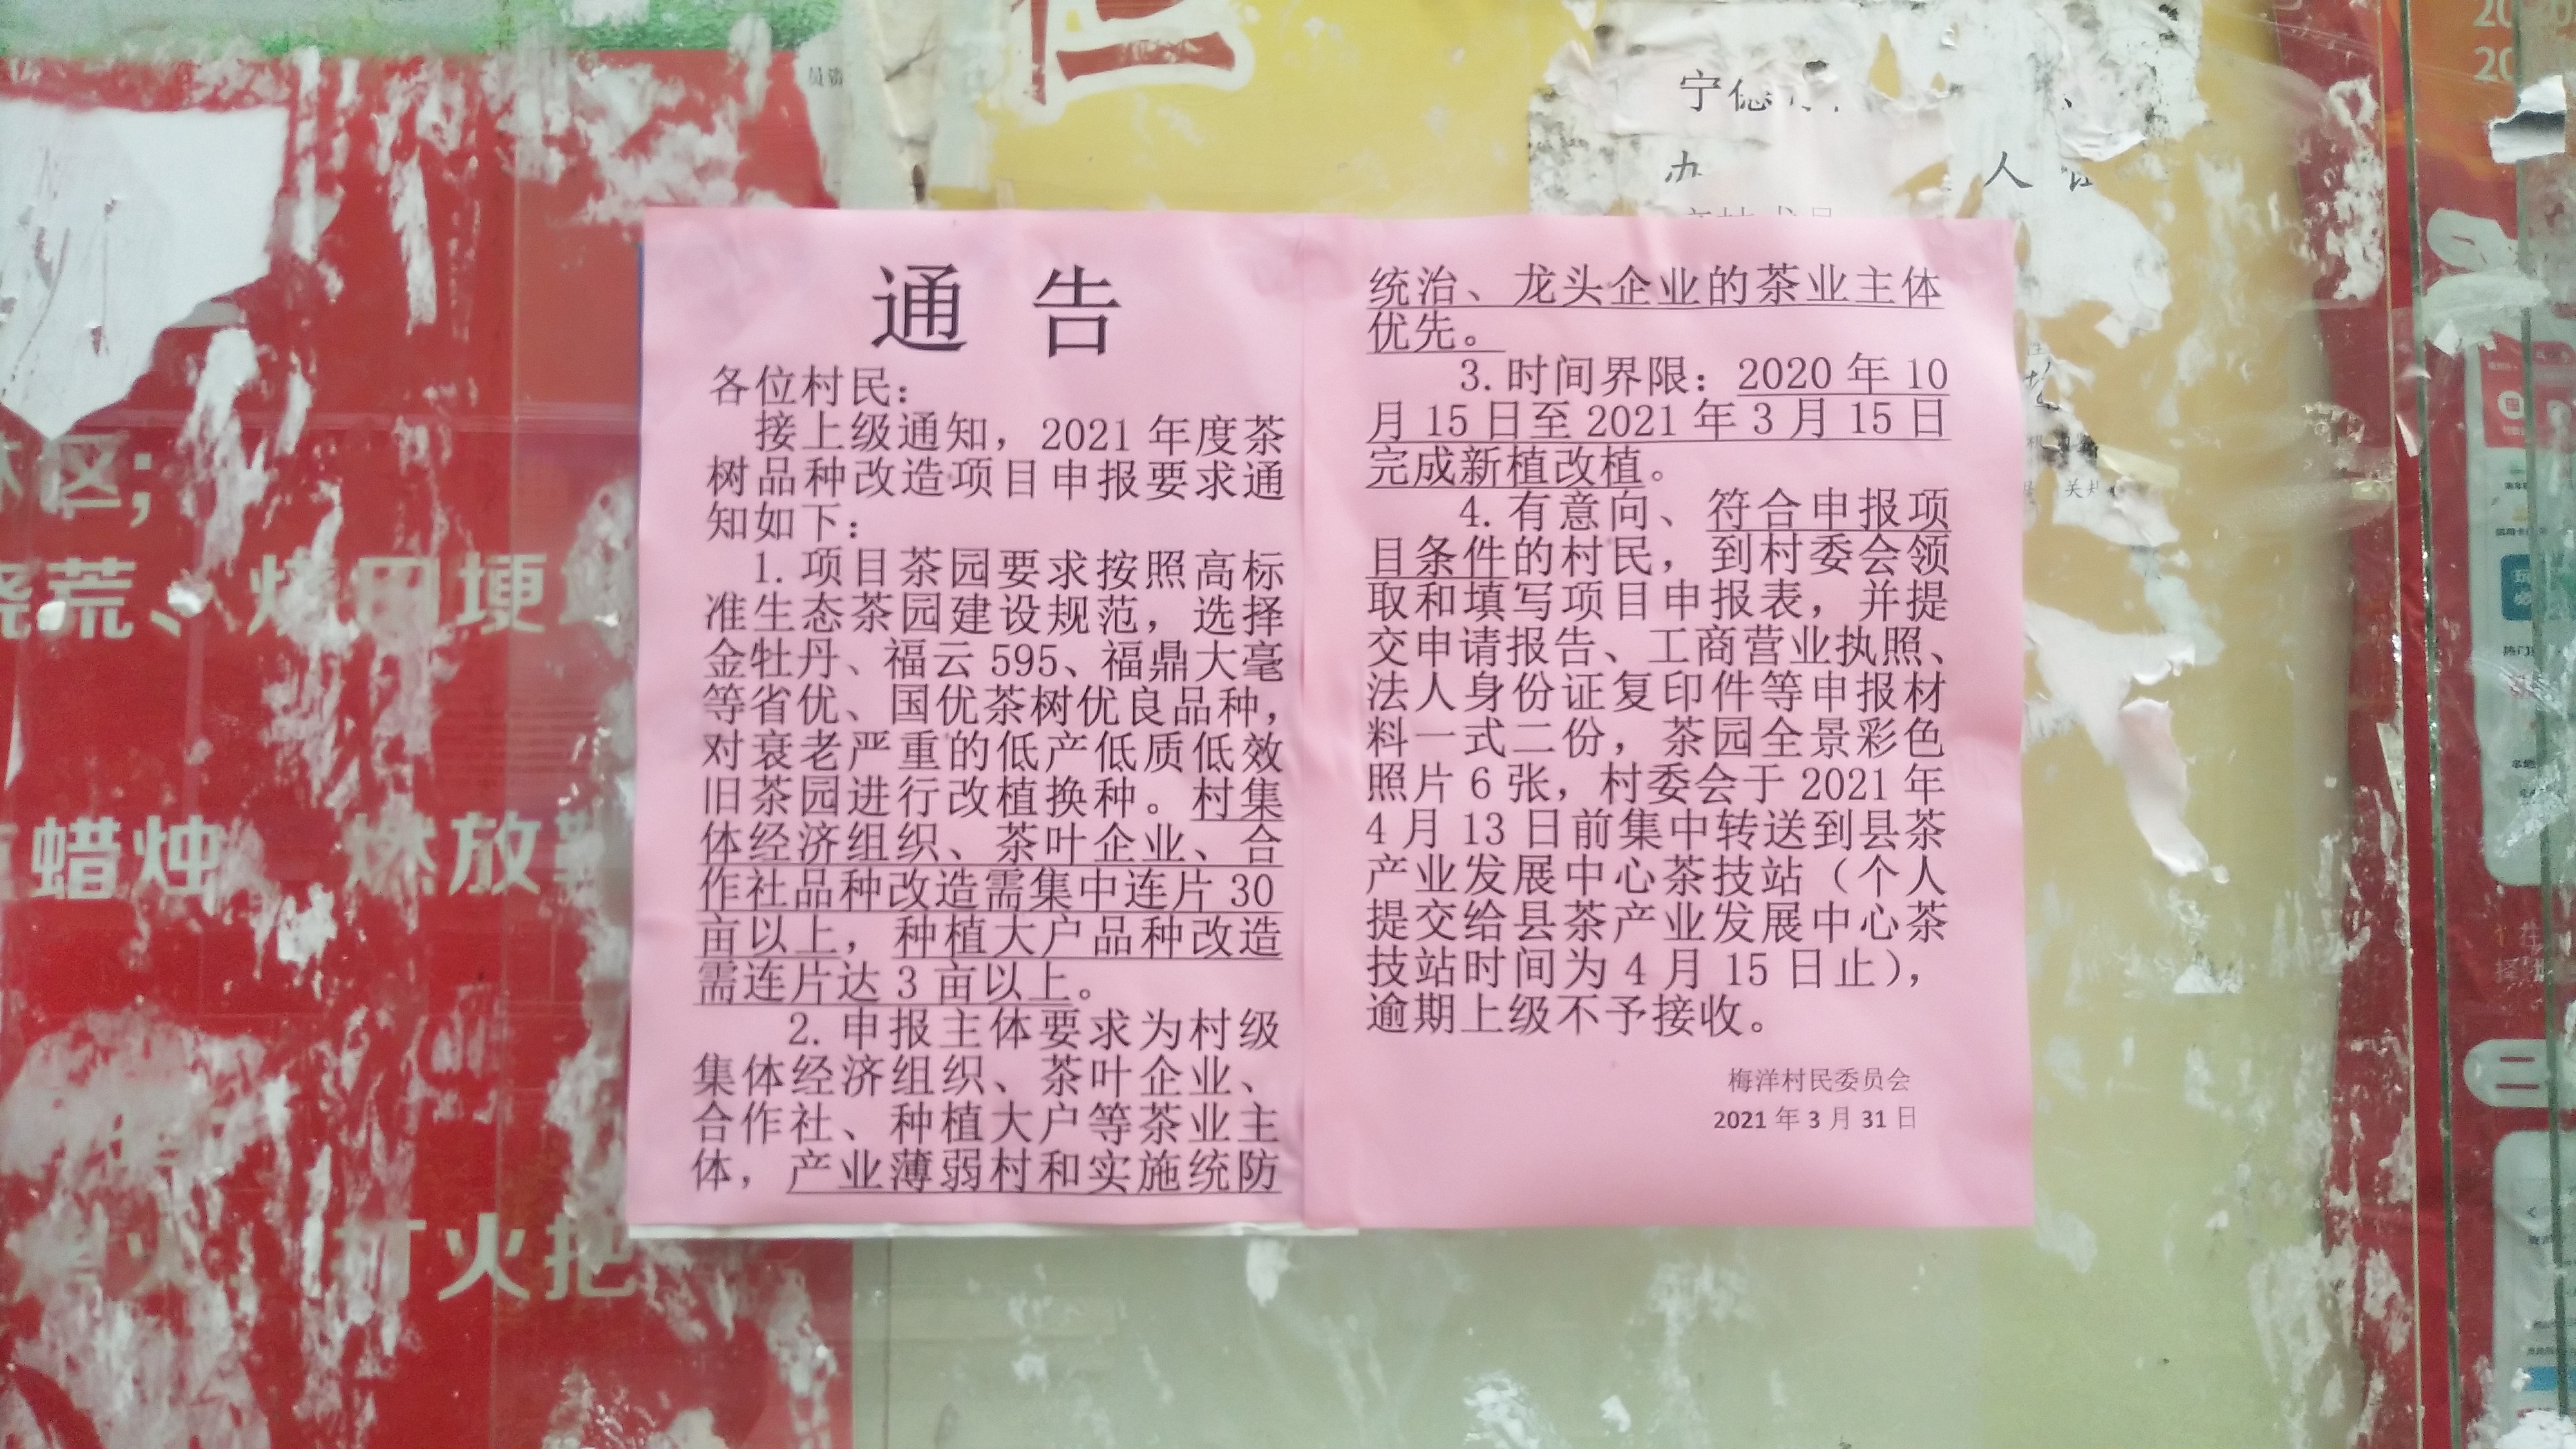 通告
各位村民：
接上级通知，2021年度茶
树品种改造项目申报要求通
知如下：
1.项目茶园要求按照高标
准生态茶园建设规范，选择
金牡丹、福云595、福鼎大毫
等省优、国优茶树优良品种，
对衰老严重的低产低质低效
旧茶园进行改植换种。村集
体经济组织、茶叶企业、合
作社品种改造需集中连片30
亩以上，种植大户品种改造
需连片达3亩以上。
2.申报主体要求为村级
集体经济组织、茶叶企业、
合作社、种植大户等茶业主
体，产业薄弱村和实施统防
统治、龙头企业的茶业主体
优先。
3.时间界限：2020年10
月15日至2021年3月15日
完成新植改植。
4.有意向、符合申报项
目条件的村民，到村委会领
取和填写项目申报表，并提
交申请报告、工商营业执照、
法人身份证复印件等申报材
料一式二份，茶园全景彩色
照片6张，村委会于2021年
4月13日前集中转送到县茶
产业发展中心茶技站（个人
提交给县茶产业发展中心茶
技站时间为4月15日止），
逾期上级不予接收。
梅洋村民委员会
2021年3月31日
区；
烧荒、烧田埂
蜡烛 燃放
火 打火把
宁
人
二